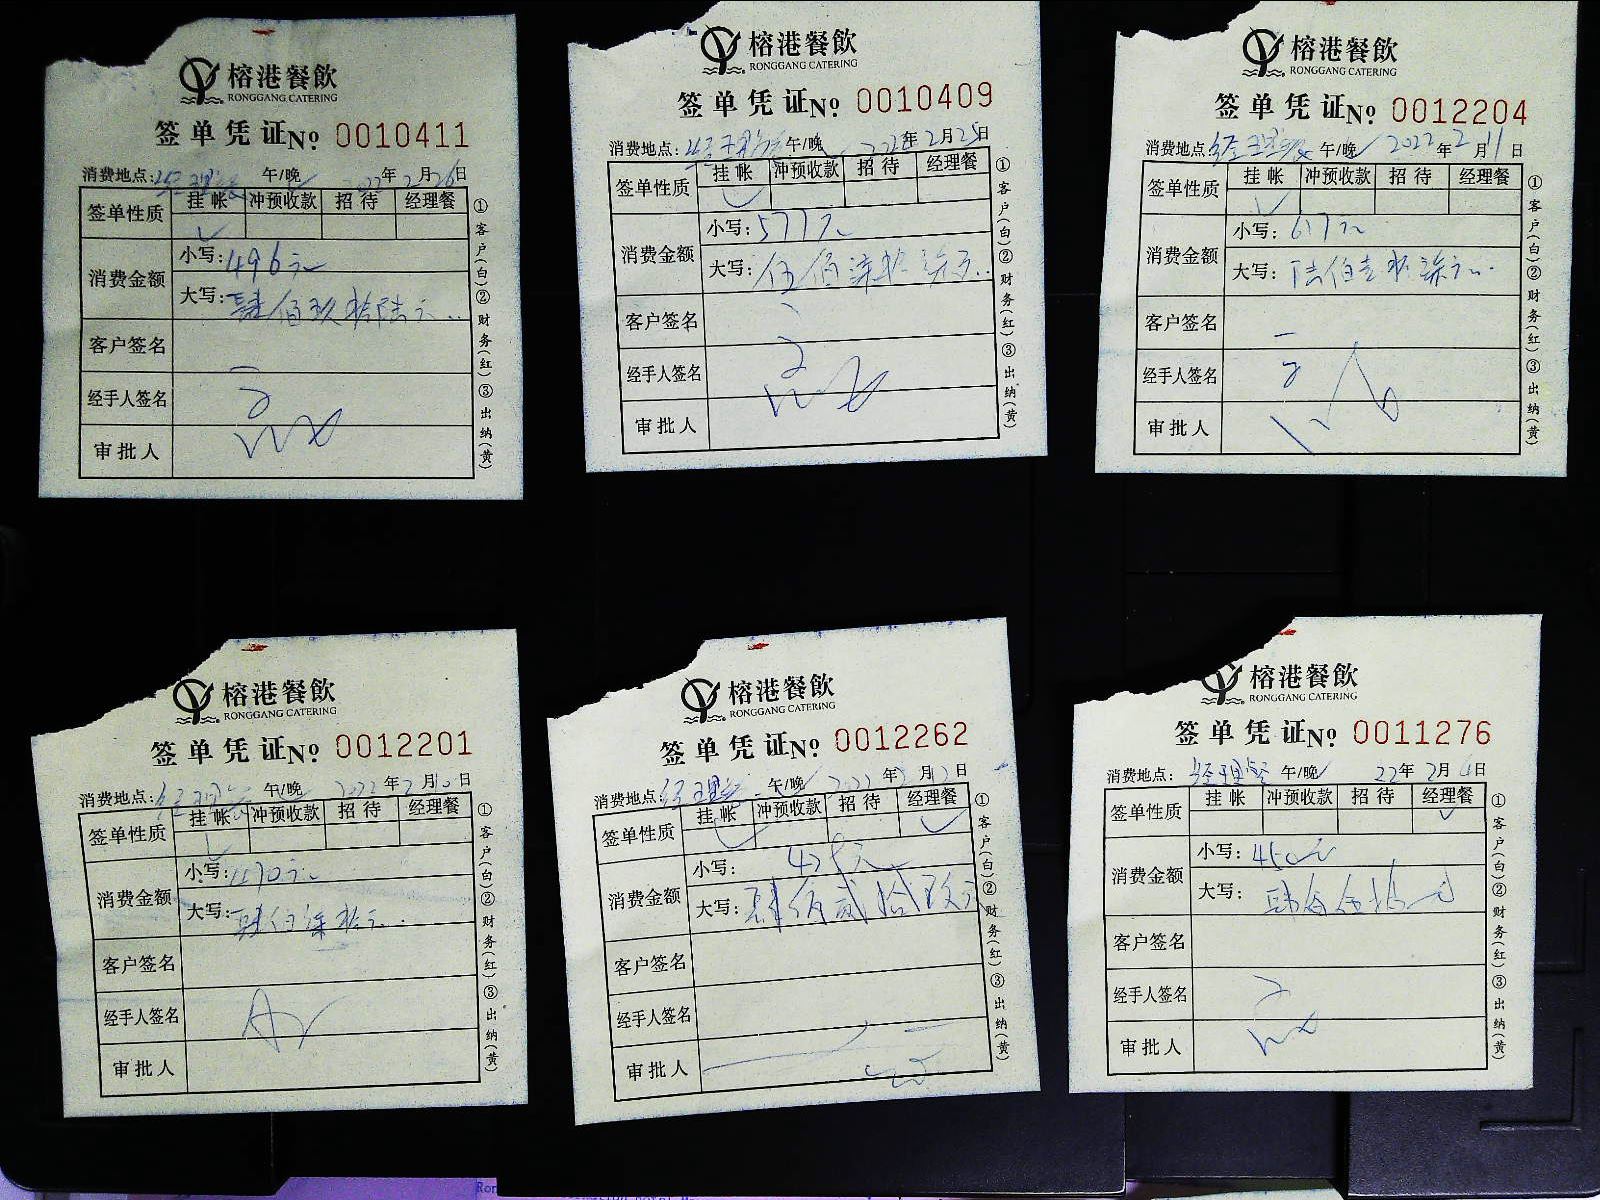 榕港餐飲
RONGGANG CATERING
签单凭证№ 0010411
消费地点: 经理餐 午/晚 2022年2月26日
签单性质 挂帐 冲预收款 招待 经理餐
消费金额 小写: 496元
大写: 肆佰玖拾陆元
客户签名
经手人签名
审批人
①客户(白)②财务(红)③出纳(黄)
榕港餐飲
RONGGANG CATERING
签单凭证№ 0010409
消费地点: 经理餐 午/晚 2022年2月25日
签单性质 挂帐 冲预收款 招待 经理餐
消费金额 小写: 577元
大写: 伍佰柒拾柒元
客户签名
经手人签名
审批人
①客户(白)②财务(红)③出纳(黄)
榕港餐飲
RONGGANG CATERING
签单凭证№ 0012204
消费地点: 经理餐 午/晚 2022年2月11日
签单性质 挂帐 冲预收款 招待 经理餐
消费金额 小写: 617元
大写: 陆佰壹拾柒元
客户签名
经手人签名
审批人
①客户(白)②财务(红)③出纳(黄)
榕港餐飲
RONGGANG CATERING
签单凭证№ 0012201
消费地点: 经理餐 午/晚 2022年2月10日
签单性质 挂帐 冲预收款 招待 经理餐
消费金额 小写: 470元
大写: 肆佰柒拾元
客户签名
经手人签名
审批人
①客户(白)②财务(红)③出纳(黄)
榕港餐飲
RONGGANG CATERING
签单凭证№ 0012262
消费地点: 经理餐 午/晚 2022年2月12日
签单性质 挂帐 冲预收款 招待 经理餐
消费金额 小写: 429元
大写: 肆佰贰拾玖元
客户签名
经手人签名
审批人
①客户(白)②财务(红)③出纳(黄)
榕港餐飲
RONGGANG CATERING
签单凭证№ 0011276
消费地点: 经理餐 午/晚 22年2月4日
签单性质 挂帐 冲预收款 招待 经理餐
消费金额 小写: 450元
大写: 肆佰伍拾元
客户签名
经手人签名
审批人
①客户(白)②财务(红)③出纳(黄)